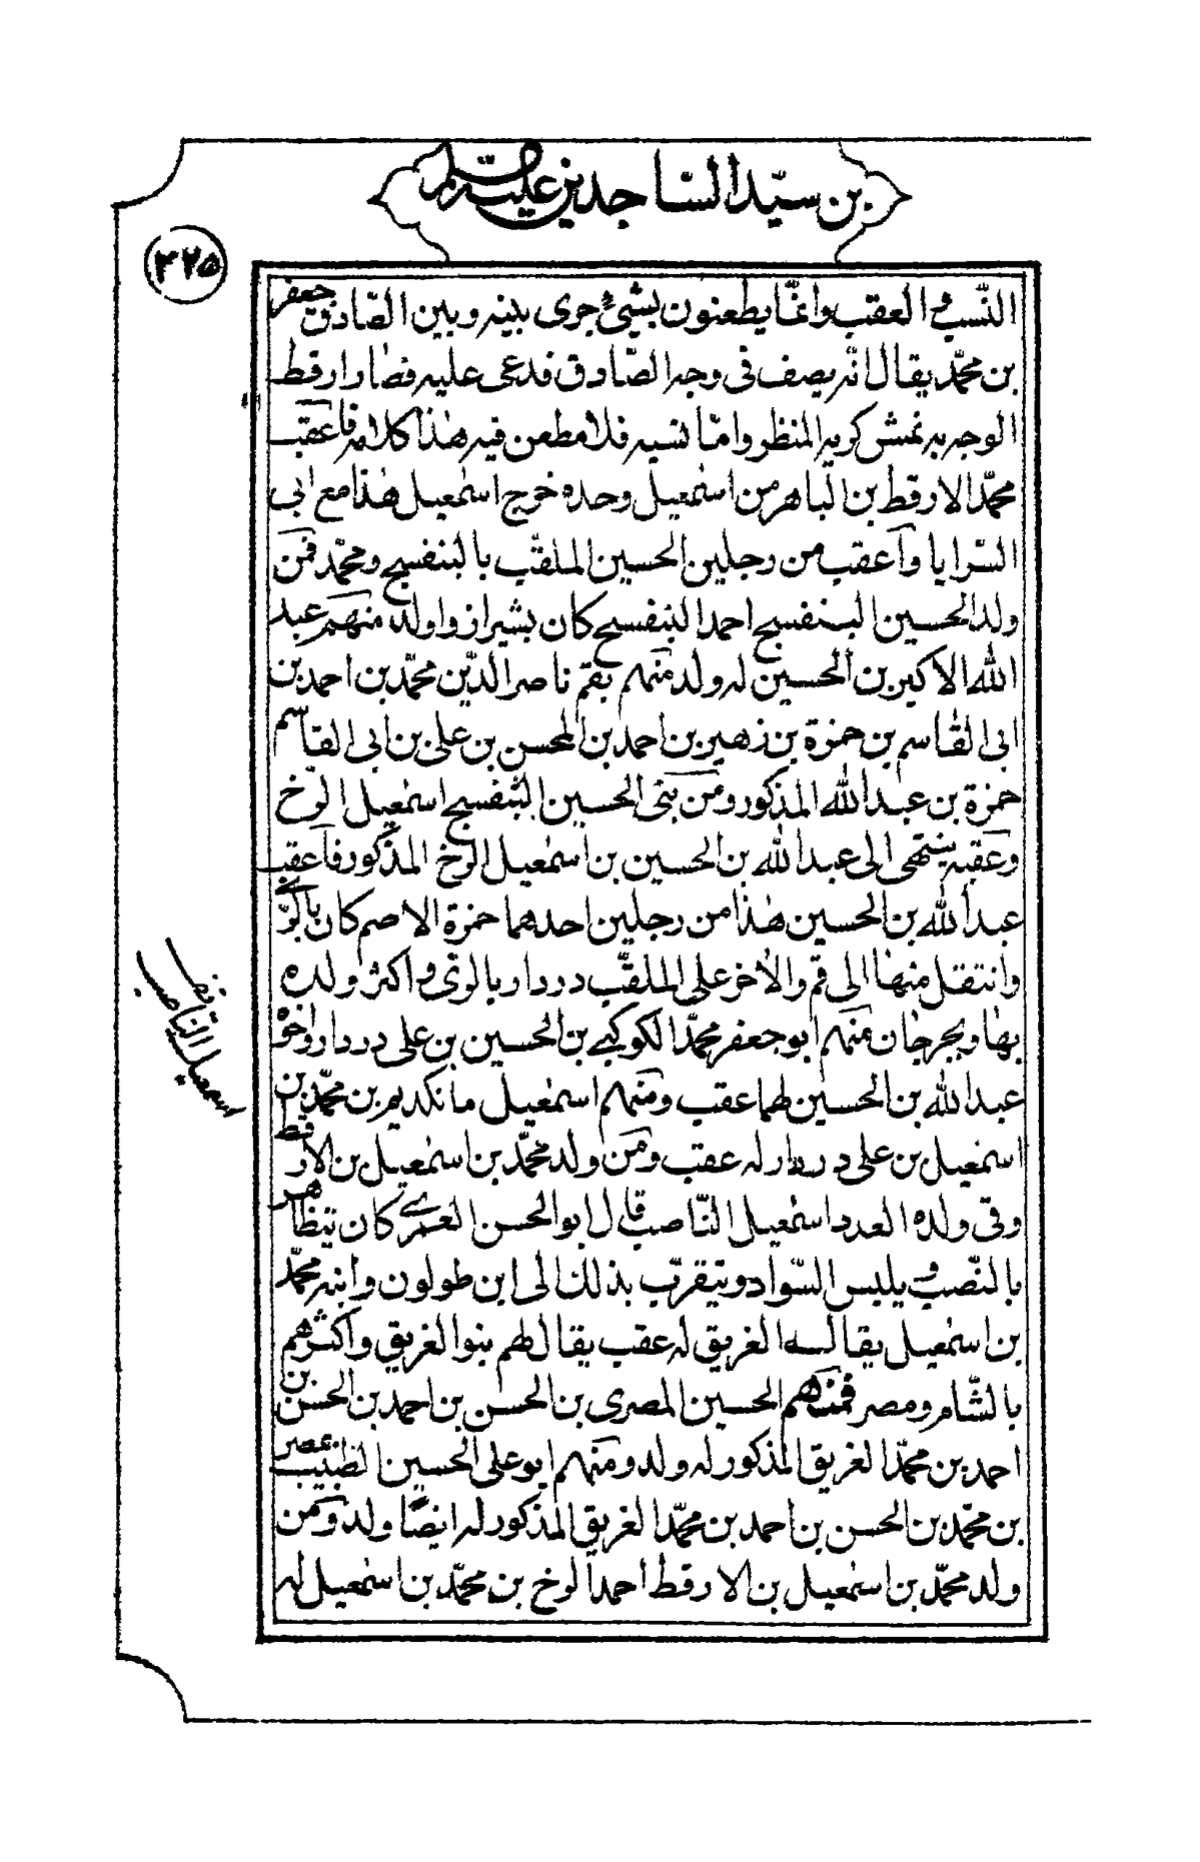 بن سيّد الساجدين عليهم السّلم
٣٢٥
النّسب و العقب و انّما يطعنون بشىء جرى بينه و بين الصّادق جعفر
بن محمّد يقال انّه بصق فى وجه الصّادق فدعى عليه فصار ارقط
الوجه به نمش كريه المنظر و امّا نسبه فلا مطعن فيه هذا كلامه فاعقب
محمّد الارقط بن الباهر من اسمعيل وحده خرج اسمعيل هذا مع ابى
السّرايا و اعقب من رجلين الحسين الملقّب بالبنفسج و محمّد فمن
ولد الحسين البنفسج احمد البنفسج كان بشيراز و اولد منهم عبد
الله الاكبر بن الحسين له ولد منهم بقم ناصر الدّين محمّد بن احمد بن
ابى القاسم بن حمزة بن زهير بن احمد بن المحسن بن على بن ابى القاسم
حمزة بن عبد الله المذكور و من بنى الحسين البنفسج اسمعيل الرّخ
و عقبه ينتهى الى عبد الله بن الحسين بن اسمعيل الرخ المذكور فاعقب
عبد الله بن الحسين هذا من رجلين احدهما حمزة الاصم كان بالرّى
و انتقل منها الى قم و الاخر على الملقّب دردار بالرى و اكثر ولده
بها و بجرجان منهم ابو جعفر محمّد الكوكبى بن الحسين بن على دردار و اخوه
عبد الله بن الحسين لهما عقب و منهم اسمعيل مانكديم بن محمّد بن
اسمعيل بن على دردار له عقب و من ولد محمّد بن اسمعيل بن الارقط
و فى ولده العدد اسمعيل النّاصب قال ابو الحسن العمرى كان يتظاهر
بالنّصب و يلبس السّواد و يتقرّب بذلك الى ابن طولون و ابنه محمّد
بن اسمعيل يقال له الغريق له عقب يقال لهم بنو الغريق و اكثرهم
بالشّام و مصر فمنهم الحسين المصرى بن الحسن بن احمد بن الحسن بن
احمد بن محمّد الغريق المذكور له ولد و منهم ابو على الحسين الطبيب بمصر
بن محمّد بن الحسن بن احمد بن محمّد الغريق المذكور له ايضًا ولد و من
ولد محمّد بن اسمعيل بن الارقط احمد الرخ بن محمّد بن اسمعيل له
اسمعيل الناصب